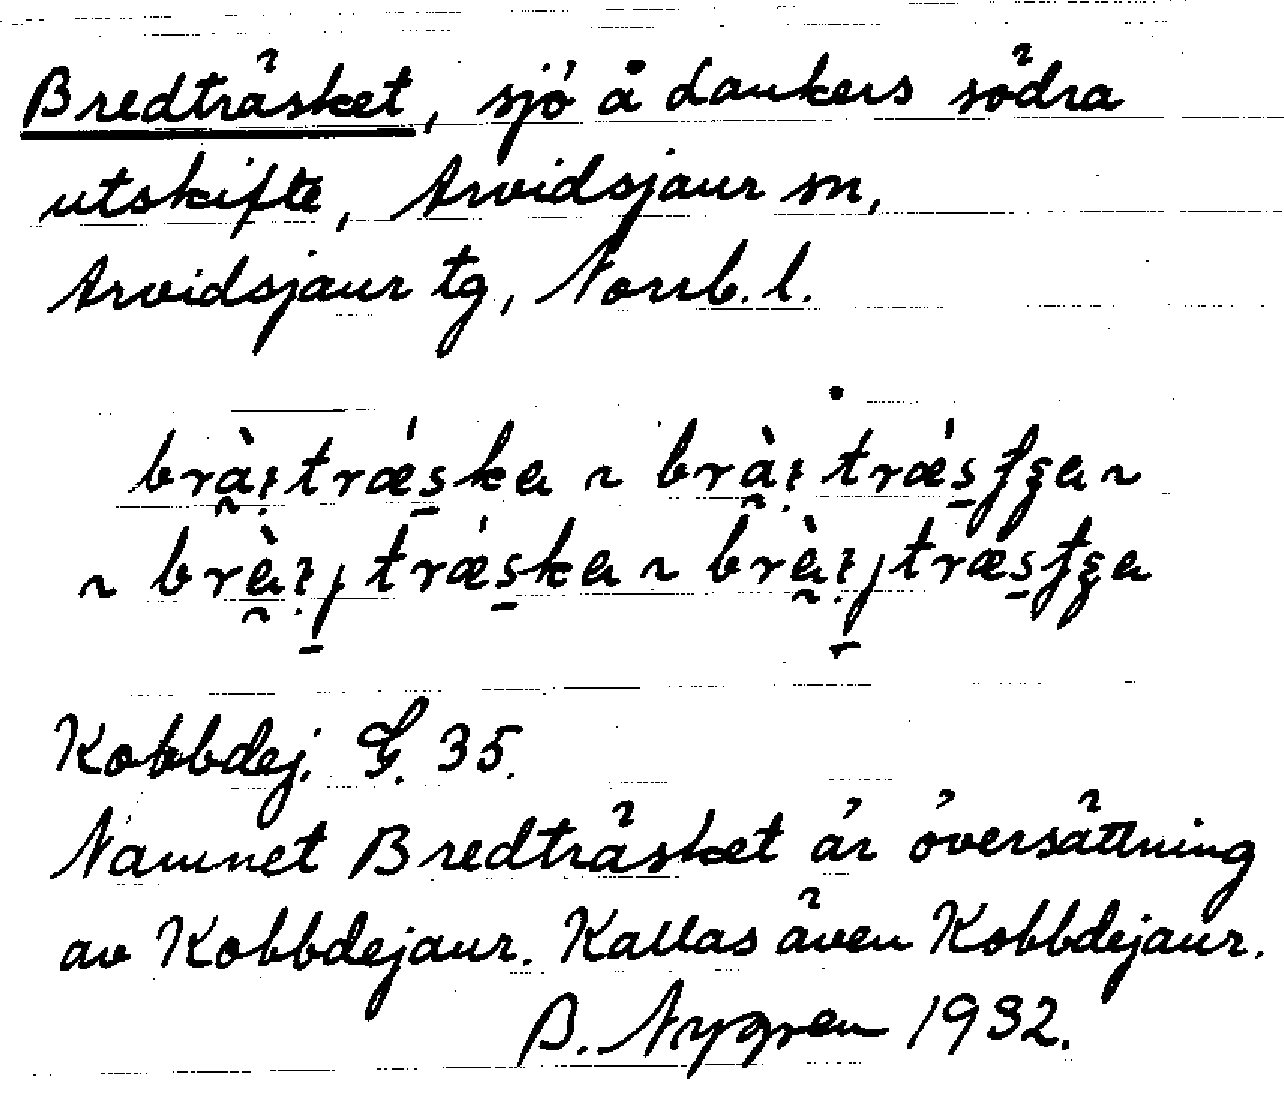 Bredträsket, sjö å Laukers södra
utskifte, Arvidsjaur sn,
Arvidsjaur tg, Norrb. l.
brà̰ı̣trǽs̠ka ~ brà̰ı̣trǽs̠ʃʒa ~
~ brɛ̰̀ı̣ȷ̠trǽs̠ka ~ brɛ̰̀ı̣ȷ̠trǽs̠ʃʒa
Kobbdej. G. 35.
Namnet Bredträsket är översättning
av Kobbdejaur. Kallas även Kobbdejaur.
B. Nygren 1932.